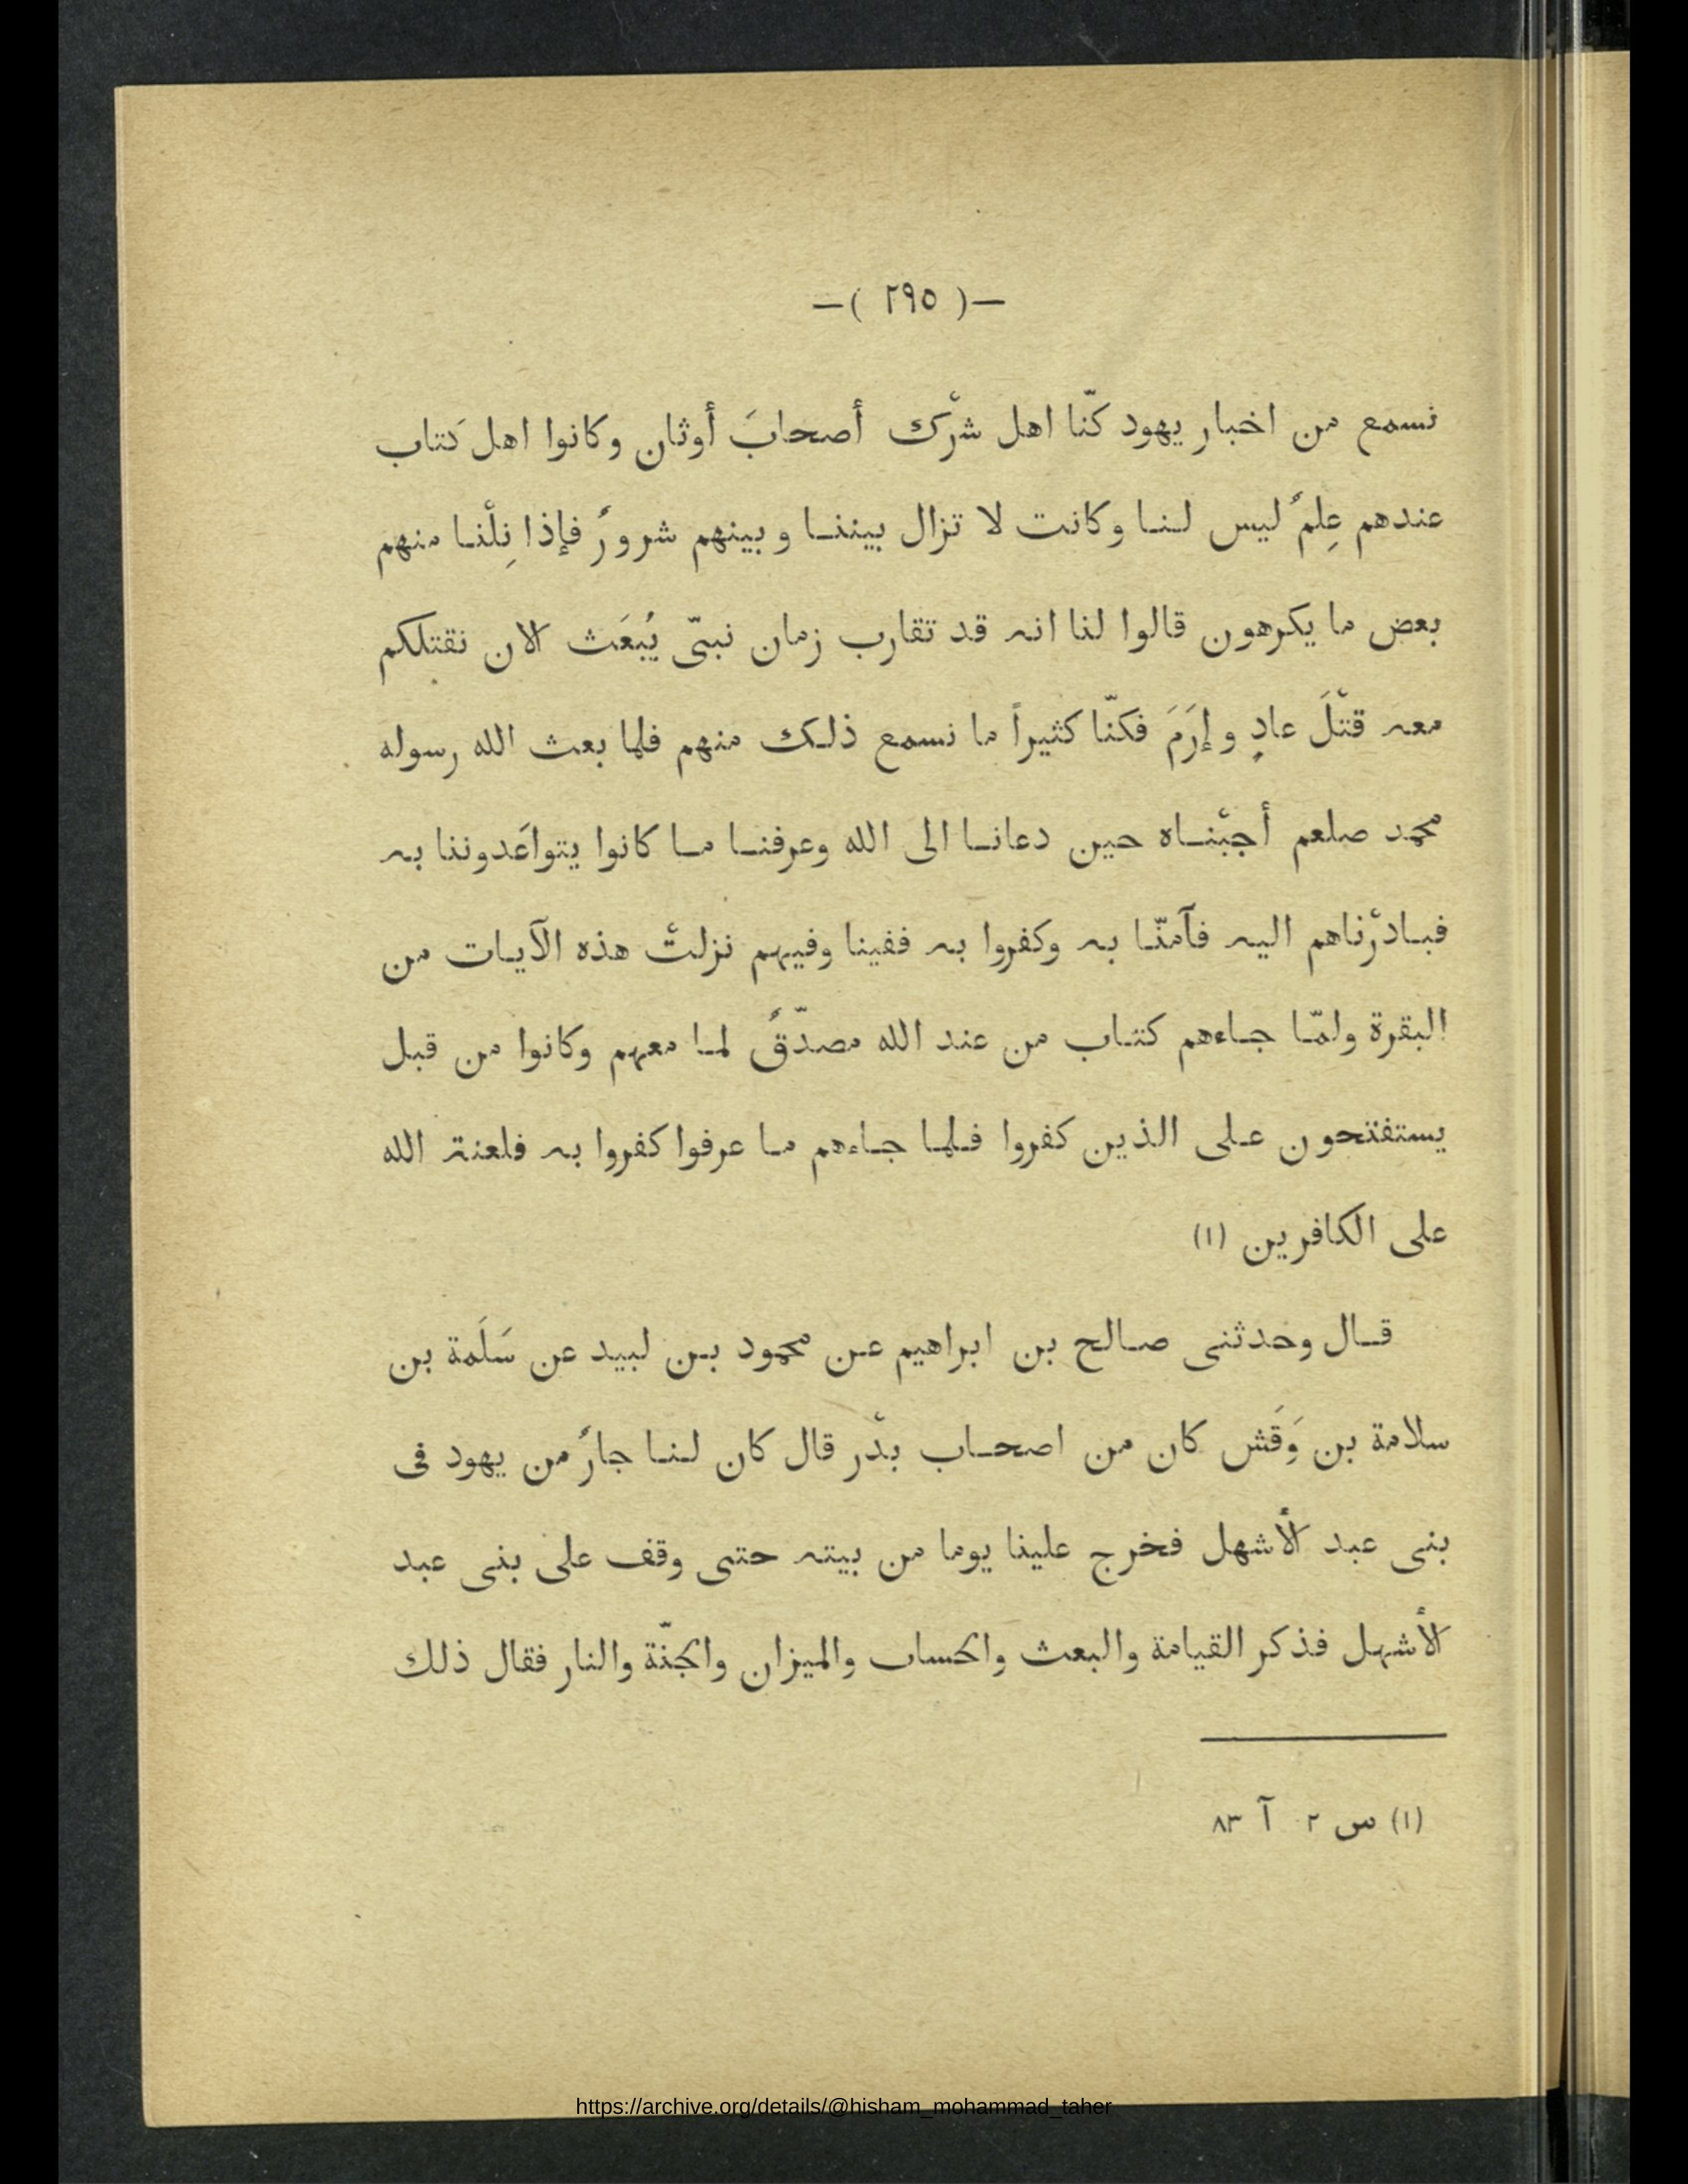 —( ٢٩٥ )—
نسمع من اخبار يهود كنّا اهل شرْك أصحابَ أوثان وكانوا اهل كتاب
عندهم عِلمٌ ليس لنا وكانت لا تزال بيننا وبينهم شرورٌ فإذا نِلْنا منهم
بعض ما يكرهون قالوا لنا انه قد تقارب زمان نبىّ يُبعَث الان نقتلكم
معه قتْلَ عادٍ وإرَمَ فكنّا كثيراً ما نسمع ذلك منهم فلما بعث الله رسوله
محمد صلعم أجبْناه حين دعانا الى الله وعرفنا ما كانوا يتواعَدوننا به
فبادرْناهم اليه فآمنّا به وكفروا به ففينا وفيهم نزلتْ هذه الآيات من
البقرة ولمّا جاءهم كتاب من عند الله مصدّقٌ لما معهم وكانوا من قبل
يستفتحون على الذين كفروا فلما جاءهم ما عرفوا كفروا به فلعنة الله
على الكافرين (١)
قال وحدثنى صالح بن ابراهيم عن محمود بن لبيد عن سَلَمة بن
سلامة بن وَقَش كان من اصحاب بدْر قال كان لنا جارٌ من يهود فى
بنى عبد الأشهل فخرج علينا يوما من بيته حتى وقف على بنى عبد
الأشهل فذكر القيامة والبعث والحساب والميزان والجنّة والنار فقال ذلك
(١) س ٢ آ ٨٣
https://archive.org/details/@hisham_mohammad_taher